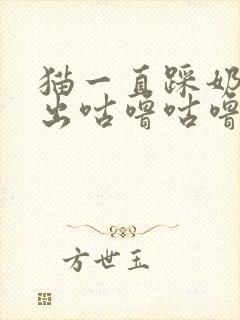 猫一直踩奶
出咕噜咕噜
方世玉